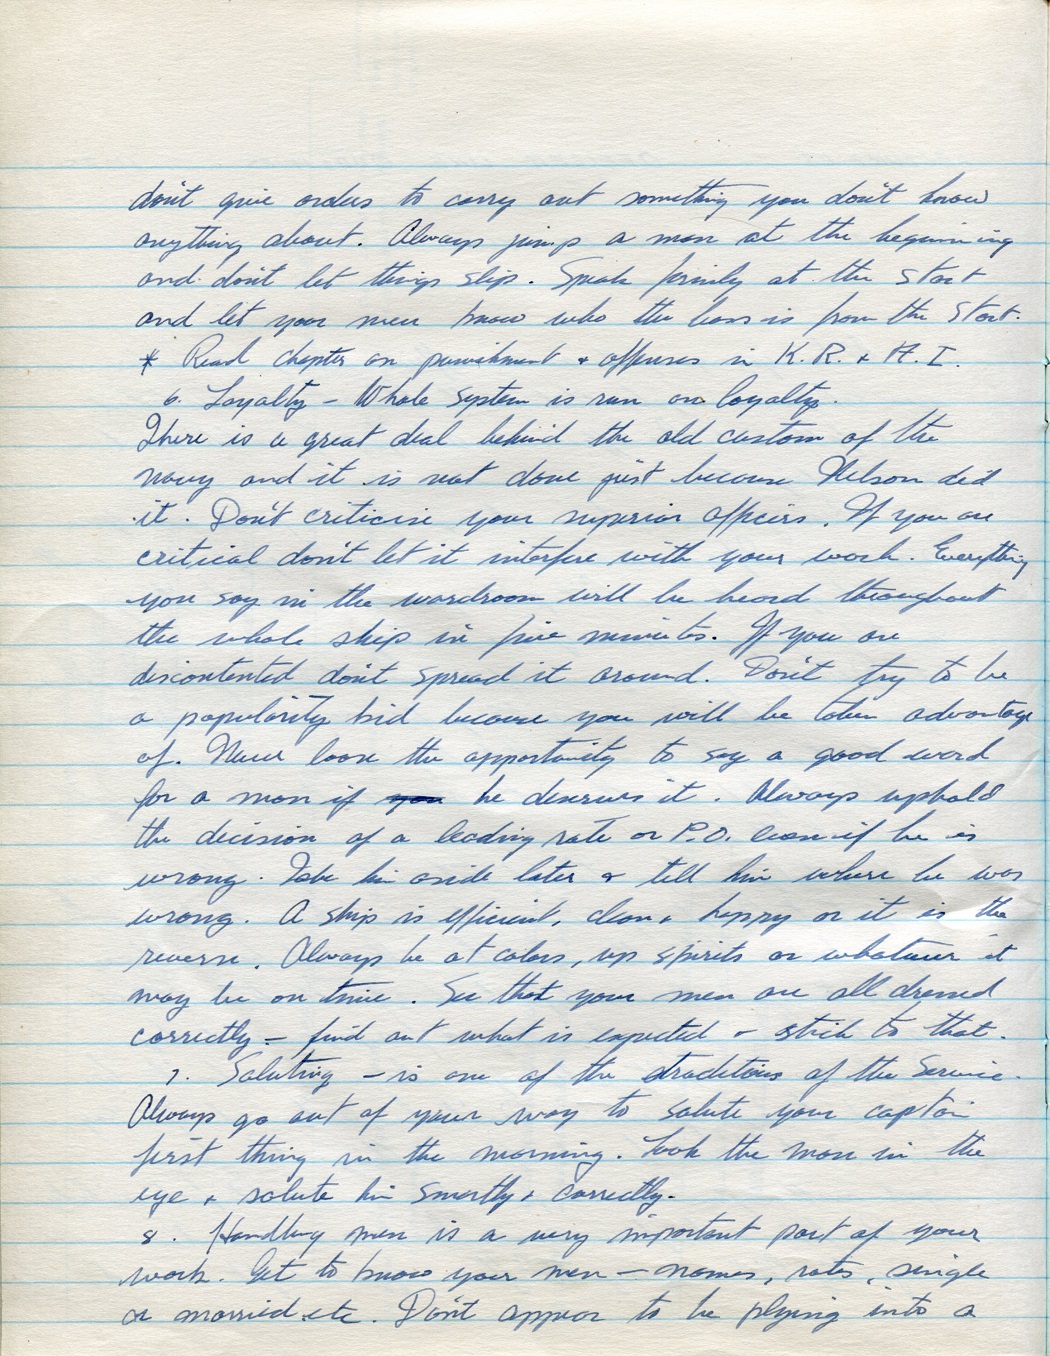 don't give orders to carry out something you don't know
anything about. Always jump a man at the beginning
and don't let things slip. Speak firmly at the start
and let your men know who the boss is from the start.
* Read chapter on punishment & offenses in K.R. & A.I.
6. Loyalty – Whole system is run on loyalty.
There is a great deal behind the old custom of the
navy and it is not done just because Nelson did
it. Don't criticise your superior officers. If you are
critical don't let it interfere with your work. Everything
you say in the wardroom will be heard throughout
the whole ship in five minutes. If you are
discontented don't spread it around. Don't try to be
a popularity kid because you will be taken advantage
of. Never loose the opportunity to say a good word
for a man if you he deserves it. Always uphold
the decision of a leading rate or P.O. even if he is
wrong. Take him aside later & tell him where he was
wrong. A ship is efficient, clean & happy or it is the
reverse. Always be at colors, up spirits or whatever it
may be on time. See that your men are all dressed
correctly – find out what is expected & stick to that.
7. Saluting – is one of the traditions of the Service.
Always go out of your way to salute your captain
first thing in the morning. Look the man in the
eye & salute him smartly & correctly.
8. Handling men is a very important part of your
work. Get to know your men – names, rates, single
or married etc. Don't appear to be plying into a